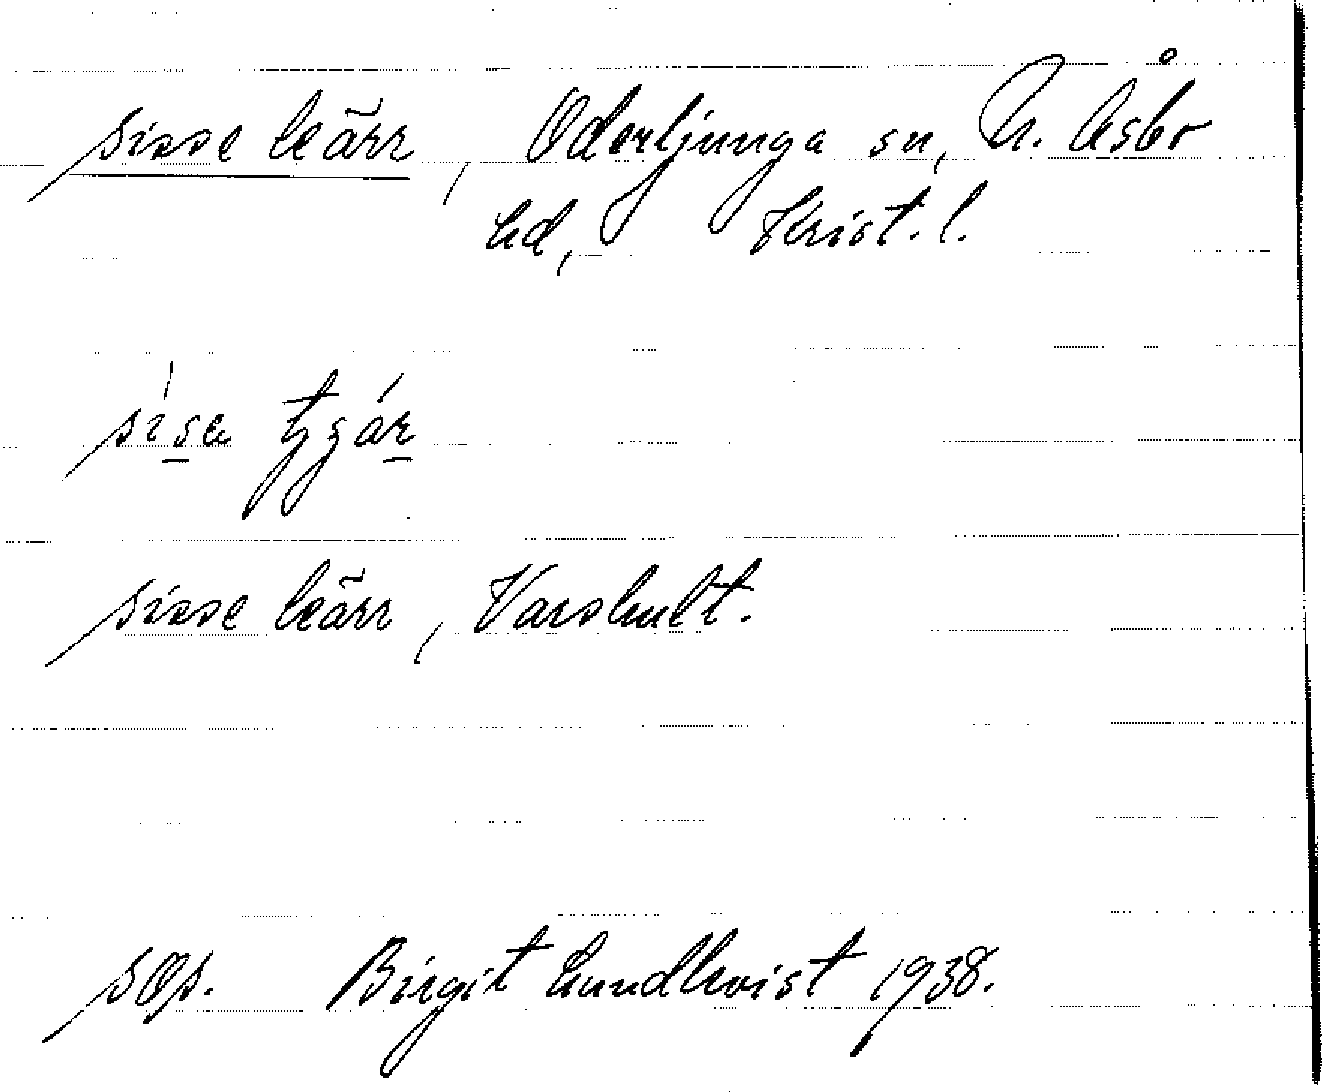 sisse kärr, Oderljunga sn, N. Åsbo
hd, Krist. l.
sisse kärr, Varshult.
Birgit Lundkvist 1938.